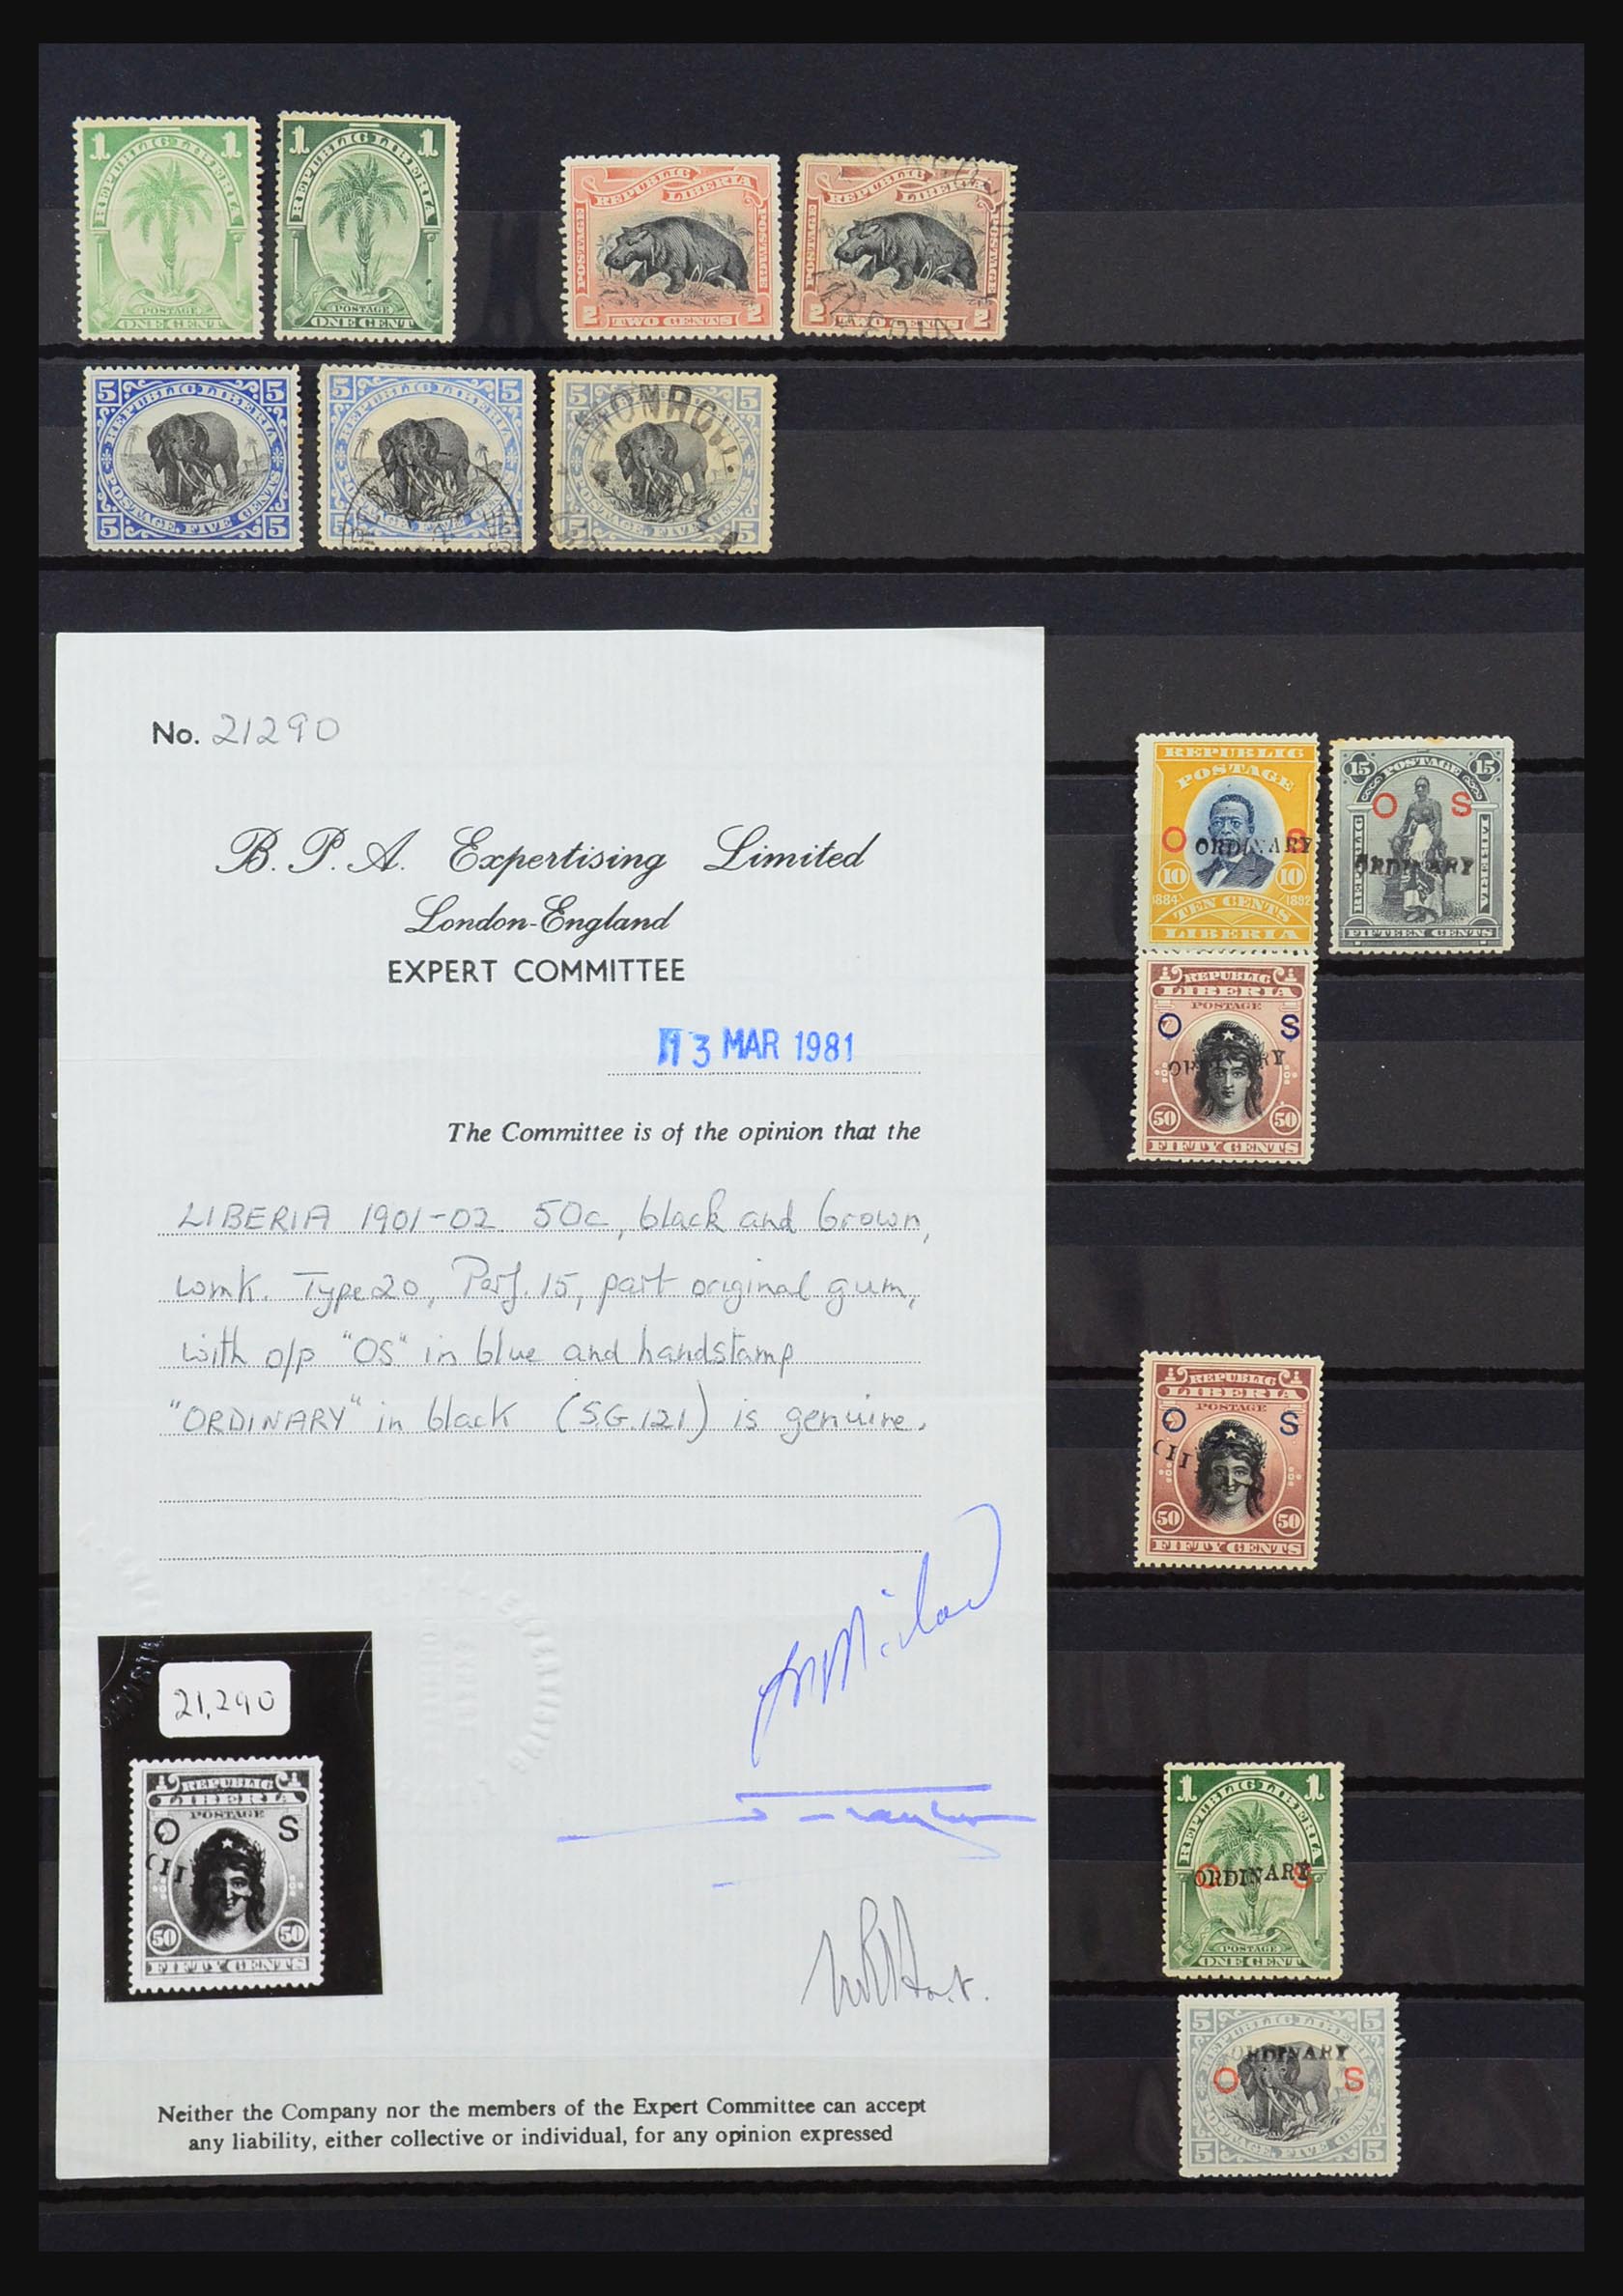 1 1
REPUBLIC LIBERIA
POSTAGE
ONE CENT
1 1
REPUBLIC LIBERIA
POSTAGE
ONE CENT
REPUBLIC
LIBERIA
POSTAGE POSTAGE
2 TWO CENTS 2
REPUBLIC
LIBERIA
POSTAGE POSTAGE
2 TWO CENTS 2
5 5
REPUBLIC LIBERIA
POSTAGE, FIVE CENTS
5 5
5 5
REPUBLIC LIBERIA
POSTAGE, FIVE CENTS
5 5
5 5
REPUBLIC LIBERIA
MONROV
POSTAGE, FIVE CENTS
5 5
No. 21290
B. P. A. Expertising Limited
London-England
EXPERT COMMITTEE
13 MAR 1981
The Committee is of the opinion that the
LIBERIA 1901-02 50c, black and brown,
wmk. Type 20, Perf. 15, part original gum,
with o/p "OS" in blue and handstamp
"ORDINARY" in black (S.G. 121) is genuine.
21,290
REPUBLIC
LIBERIA
POSTAGE
O S
50 50
FIFTY CENTS
Neither the Company nor the members of the Expert Committee can accept
any liability, either collective or individual, for any opinion expressed
REPUBLIC
POSTAGE
O S
ORDINARY
10 10
1884 1892
TEN CENTS
LIBERIA
15 POSTAGE 15
O S
REPUBLIC LIBERIA
ORDINARY
FIFTEEN CENTS
REPUBLIC
LIBERIA
POSTAGE
O S
ORDINARY
50 50
FIFTY CENTS
REPUBLIC
LIBERIA
POSTAGE
O S
50 50
FIFTY CENTS
1 1
REPUBLIC LIBERIA
O S
ORDINARY
POSTAGE
ONE CENT
5 5
REPUBLIC LIBERIA
ORDINARY
O S
POSTAGE, FIVE CENTS
5 5